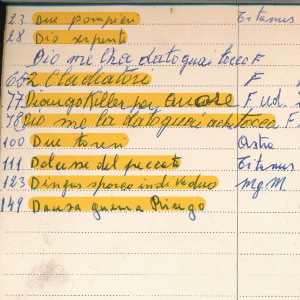 23 Due pompieri Titanus
28 Dio serpente
Dio me l'ha dato guai tocco F
652 Gladiatori F
77 Django Killer per amore F. ud.
78 Dio me la dato guai a chi tocca F
100 Due toreri Astra
111 Dolcezze del peccato Titanus
123 Dingus sporco individuo M.G.M.
149 Danza guerra Ringo